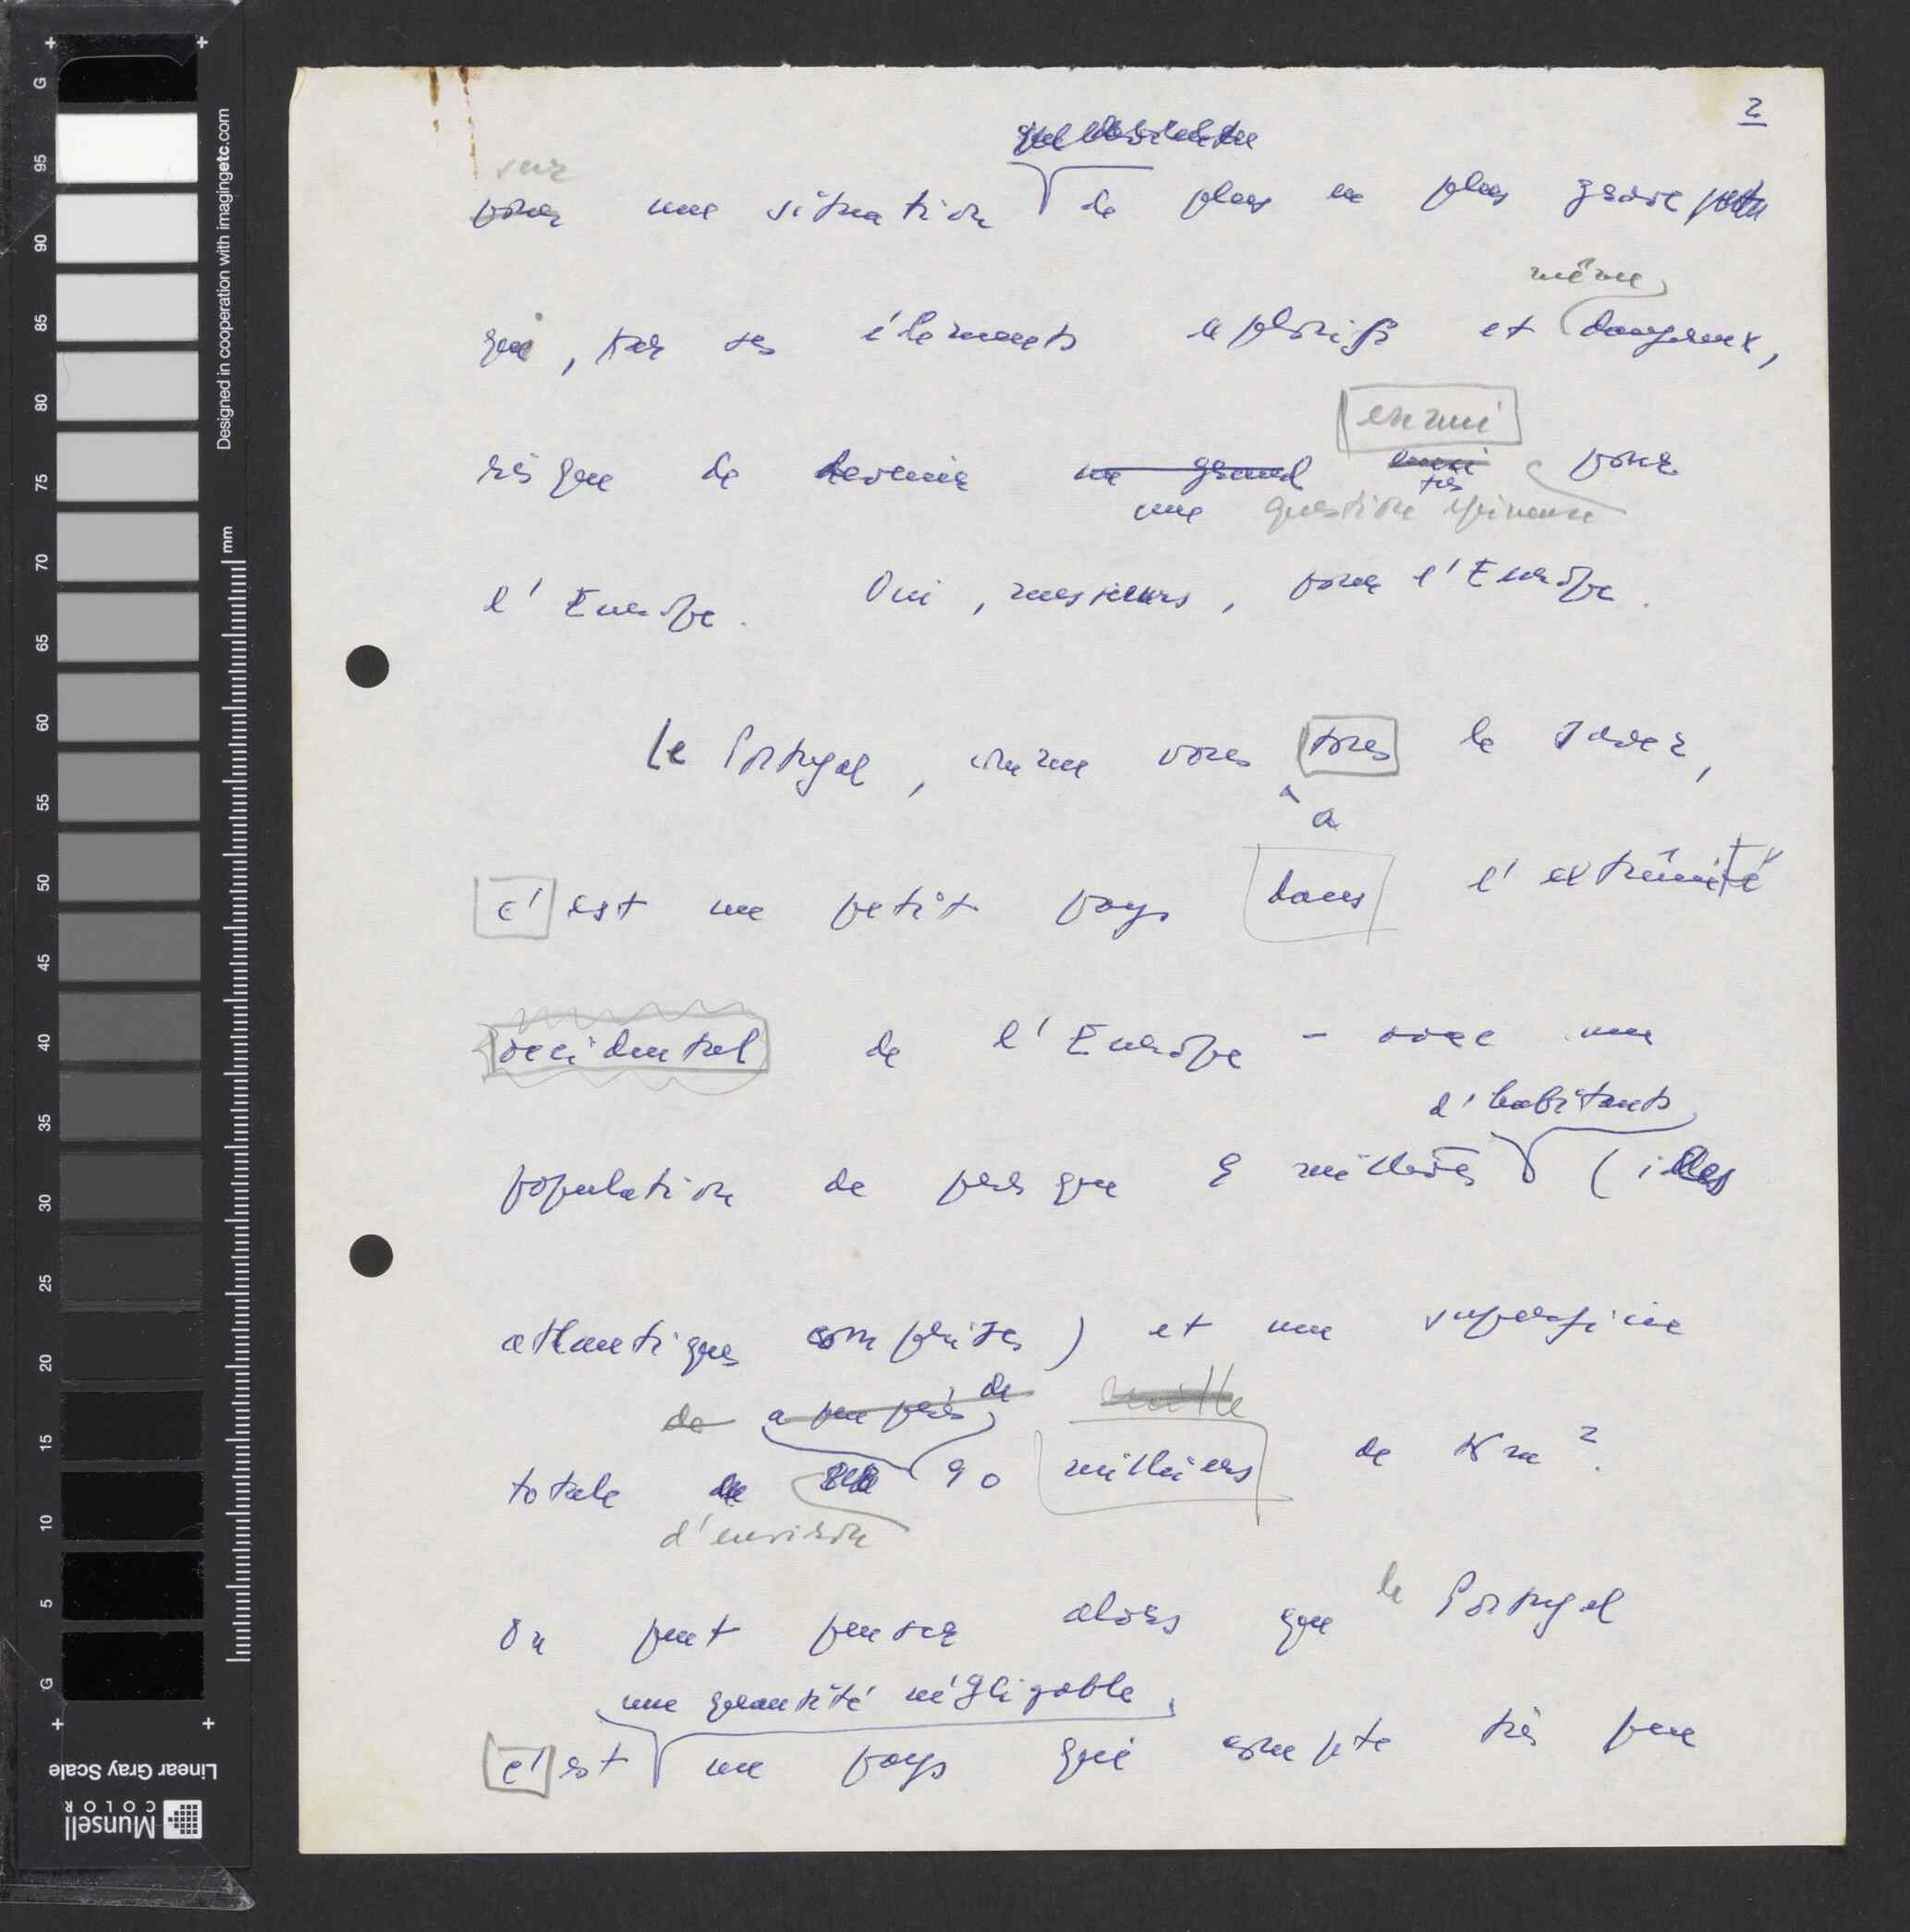 2
sur
pour une situation de plus en plus grave
même
qui, par ses éléments explosifs et dangereux,
ennui
risque de devenir un grand ennui pour
une question très épineuse
l'Europe. Oui, messieurs, pour l'Europe.
Le Portugal, comme vous tous le savez,
à
c'est un petit pays dans l'extrêmité
occidental de l'Europe - avec une
d'habitants
population de presque 9 millions (illes
atlantiques comprises) et une superficie
de a peu près de mille
totale de 90 milliers de Km2.
d'environ
On peut penser alors que le Portugal
une quantité négligable,
c'est un pays qui compte très peu
G 95 90 85 80 75 70 65 60 55 50 45 40 35 30 25 20 15 10 5 G
Designed in cooperation with imagingetc.com
mm
Linear Gray Scale
Munsell
COLOR